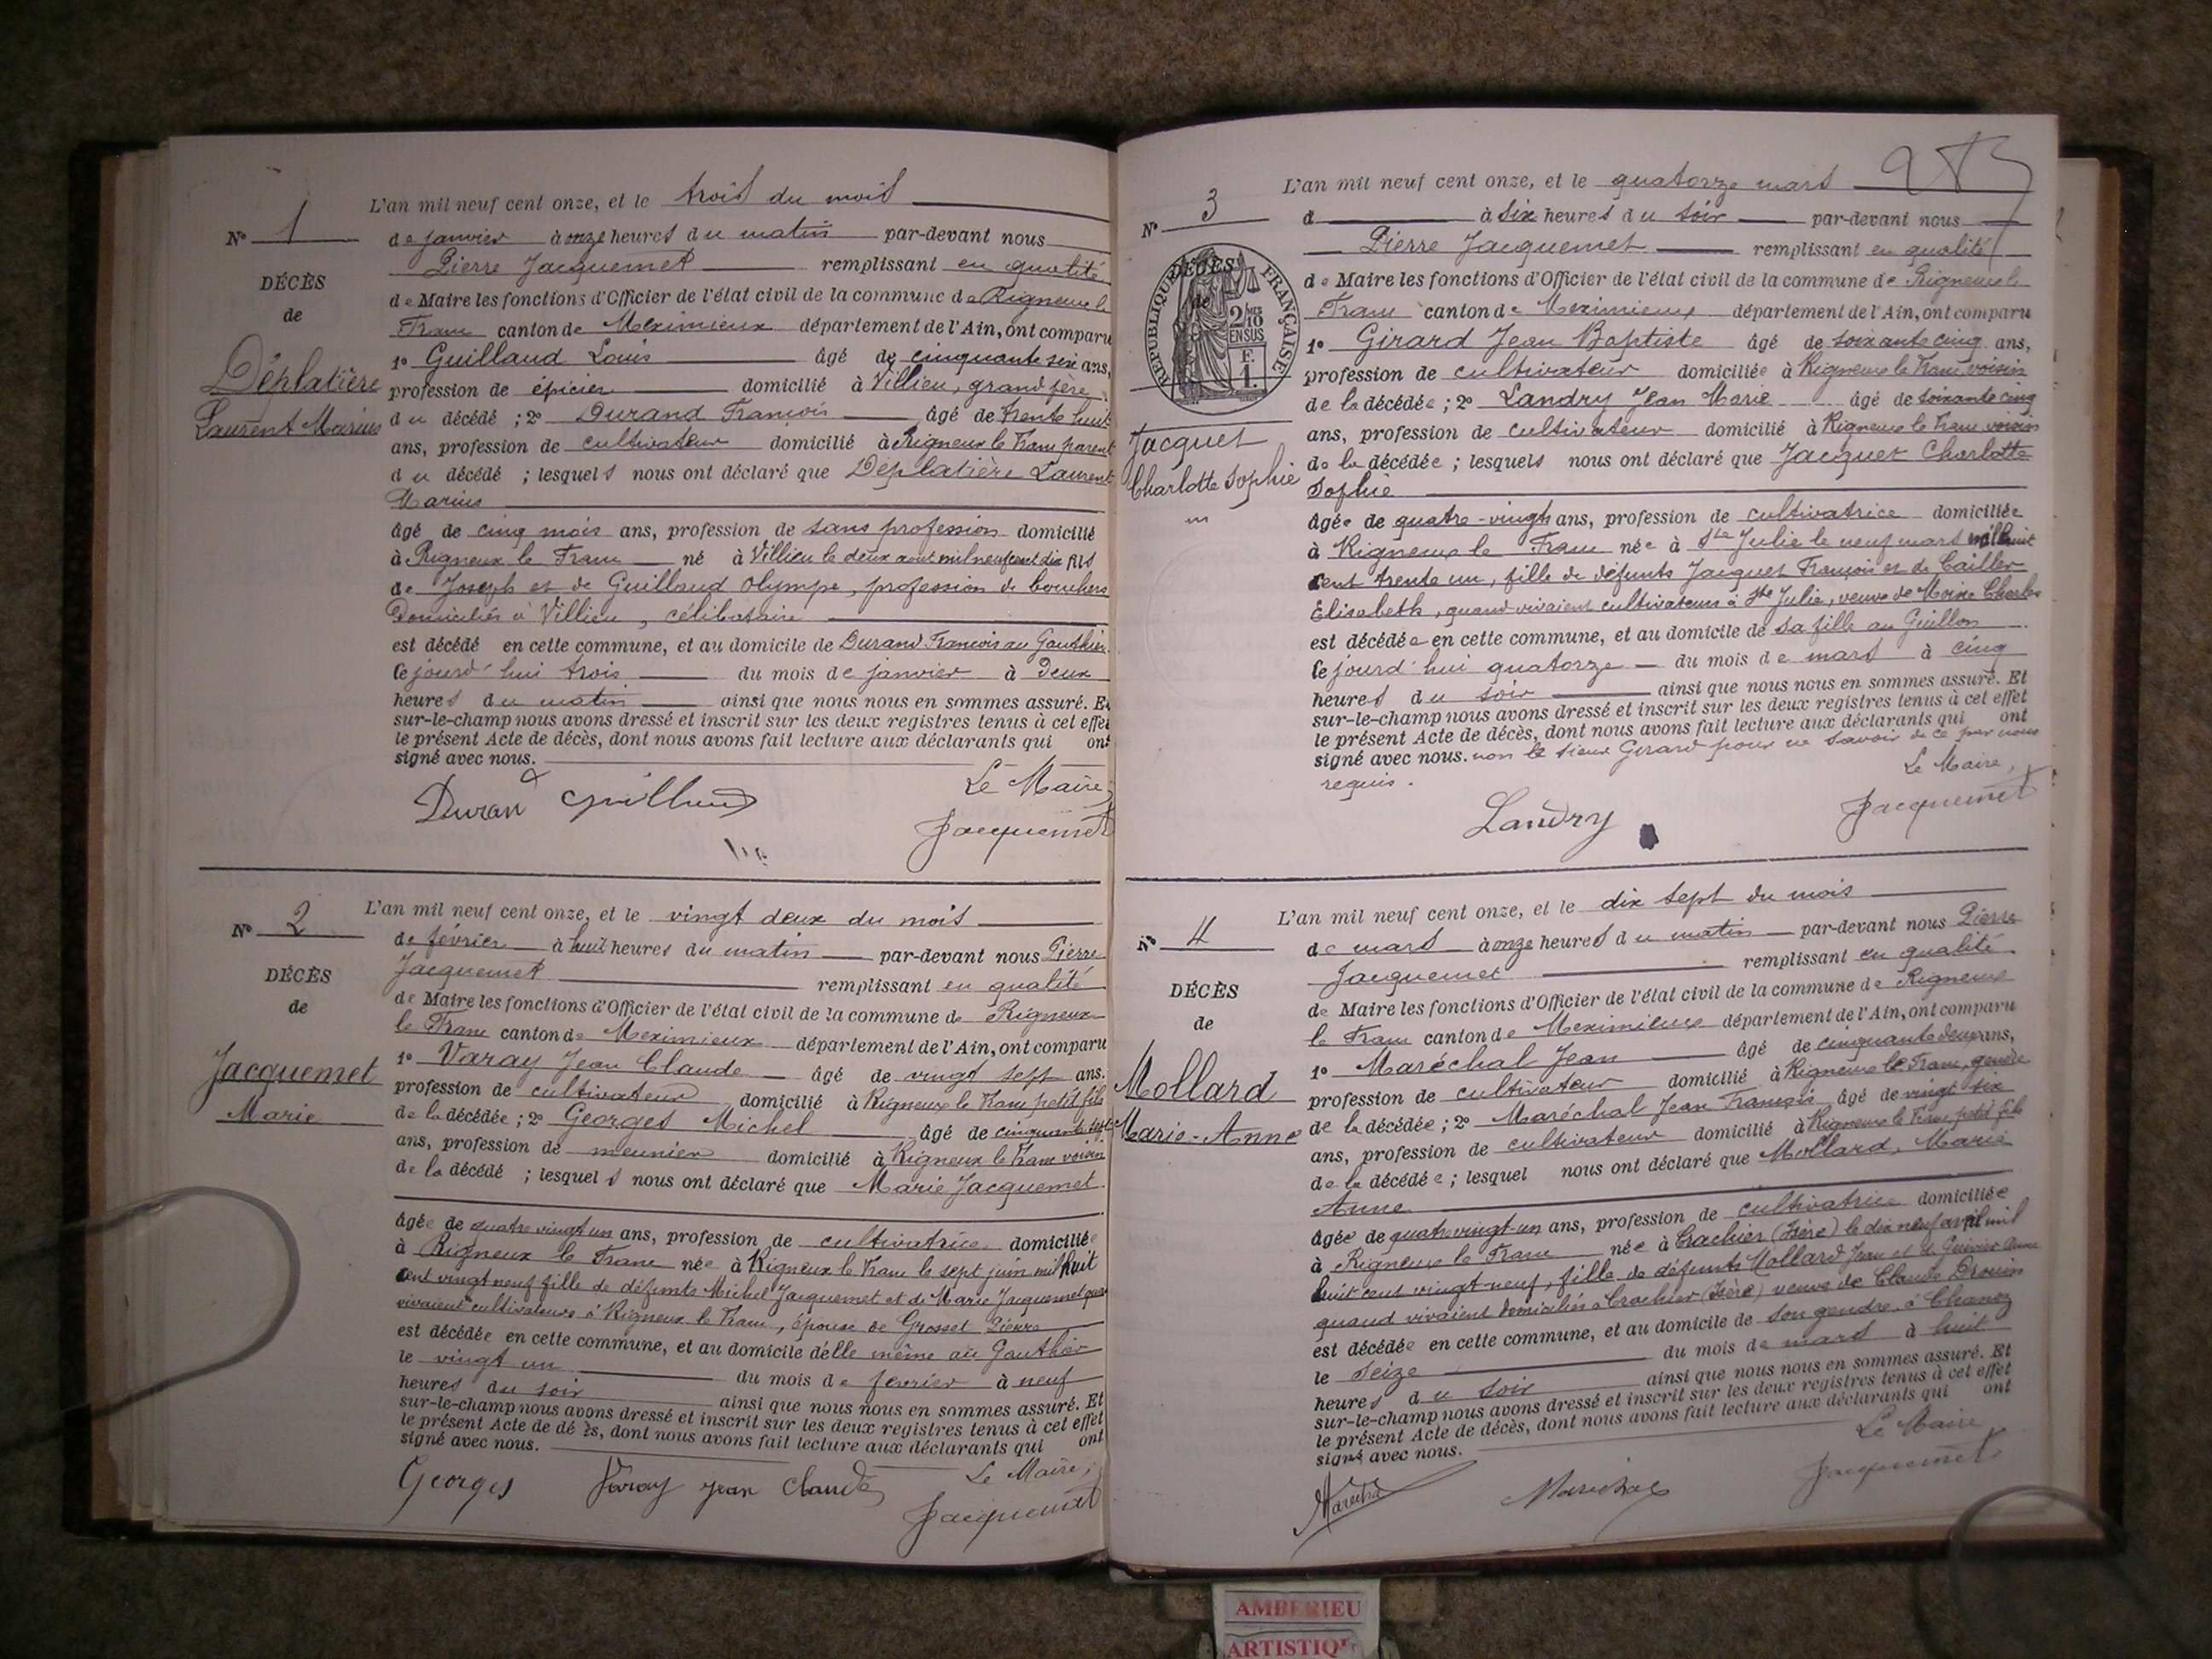 L'an mil neuf cent onze, et le trois du mois
N° 1
de janvier à onze heures du matin par-devant nous
Pierre Jacquemet remplissant en qualité
DÉCÈS
de Maire les fonctions d'Officier de l'état civil de la commune de Rigneux le
de
Franc canton de Meximieux département de l'Ain, ont comparu
1° Guillaud Louis âgé de cinquante six ans,
Déplatière
profession de épicier domicilié à Villieu, grand père
Laurent Marius
du décédé ; 2° Durand François âgé de trente huit
ans, profession de cultivateur domicilié à Rigneux le Franc parent
du décédé ; lesquels nous ont déclaré que Déplatière Laurent
Marius
âgé de cinq mois ans, profession de sans profession domicilié
à Rigneux le Franc né à Villieu le deux aout mil neuf cent dix fils
de Joseph et de Guillaud Olympe, profession de bouchers
Domiciliés à Villieu, célibataire
est décédé en cette commune, et au domicile de Durand François au Gauthier
Cejourd'hui trois du mois de janvier à Deux
heures du matin ainsi que nous nous en sommes assuré. Et
sur-le-champ nous avons dressé et inscrit sur les deux registres tenus à cet effet
le présent Acte de décès, dont nous avons fait lecture aux déclarants qui ont
signé avec nous.
Le Maire,
Durand Guillaud
Jacquemet
L'an mil neuf cent onze, et le vingt deux du mois
N° 2
de février à huit heures du matin par-devant nous Pierre
Jacquemet remplissant en qualité
DÉCÈS
de Maire les fonctions d'Officier de l'état civil de la commune de Rigneux
de
le Franc canton de Meximieux département de l'Ain, ont comparu
1° Varay Jean Claude âgé de vingt sept ans.
Jacquemet
profession de cultivateur domicilié à Rigneux le Franc petit fils
Marie
de la décédée ; 2° Georges Michel âgé de cinquante sept
ans, profession de meunier domicilié à Rigneux le Franc voisin
de la décédé ; lesquels nous ont déclaré que Marie Jacquemet
âgée de quatre vingt un ans, profession de cultivatrice domiciliée
à Rigneux le Franc née à Rigneux le Franc le sept juin mil huit
cent vingt neuf fille de défunts Michel Jacquemet et de Marie Jacquemet
vivaient cultivateurs à Rigneux le Franc, épouse de Grosset Pierre
est décédée en cette commune, et au domicile delle même au Gauthier
le vingt un du mois de fevrier à neuf
heures du soir ainsi que nous nous en sommes assuré. Et
sur-le-champ nous avons dressé et inscrit sur les deux registres tenus à cet effet
le présent Acte de dé ès, dont nous avons fait lecture aux déclarants qui ont
signé avec nous.
Le Maire,
Georges Varay Jean Claude
Jacquemet
L'an mil neuf cent onze, et le quatorze mars
N° 3
d à six heures du soir par-devant nous
Pierre Jacquemet remplissant en qualité
DÉCÈS
de
RÉPUBLIQUE FRANÇAISE
2/10 MES
EN SUS
F.
1.
de Maire les fonctions d'Officier de l'état civil de la commune de Rigneux le
Franc canton de Meximieux département de l'Ain, ont comparu
1° Girard Jean Baptiste âgé de soixante cinq ans,
profession de cultivateur domiciliée à Rigneux le Franc voisin
de la décédée ; 2° Landry Jean Marie âgé de soixante cinq
Jacquet
ans, profession de cultivateur domicilié à Rigneux le Franc voisin
Charlotte Sophie
de la décédée ; lesquels nous ont déclaré que Jacquet Charlotte
Sophie
âgée de quatre-vingts ans, profession de cultivatrice domiciliée
à Rigneux le Franc née à Ste Julie le neuf mars mil huit
cent trente un, fille de défunts Jacquet François et de Cailler
Elisabeth, quand vivaient cultivateurs à Ste Julie, veuve de Moine Charles
est décédée en cette commune, et au domicile de sa fille au Guillon
Cejourd'hui quatorze du mois de mars à cinq
heures du soir ainsi que nous nous en sommes assuré. Et
sur-le-champ nous avons dressé et inscrit sur les deux registres tenus à cet effet
le présent Acte de décès, dont nous avons fait lecture aux déclarants qui ont
signé avec nous. non le sieur Girard pour ne savoir de ce par nous
requis.
Le Maire,
Landry
Jacquemet
L'an mil neuf cent onze, et le dix sept du mois
N° 4
de mars à onze heures du matin par-devant nous Pierre
Jacquemet remplissant en qualité
DÉCÈS
de Maire les fonctions d'Officier de l'état civil de la commune de Rigneux
de
le Franc canton de Meximieux département de l'Ain, ont comparu
1° Maréchal Jean âgé de cinquante deux ans,
Mollard
profession de cultivateur domicilié à Rigneux le Franc, gendre
Marie-Anne
de la décédée ; 2° Maréchal Jean François âgé de vingt six
ans, profession de cultivateur domicilié à Rigneux le Franc petit fils
de la décédée ; lesquel nous ont déclaré que Mollard, Marie
Anne
âgée de quatre vingt-un ans, profession de cultivatrice domiciliée
à Rigneux le Franc née à Crachier (Isère) le dix neuf avril mil
huit cent vingt-neuf, fille de défunts Mollard Jean et de Anne
quand vivaient domiciliés à Crachier (Isère) veuve de Claude Drouin
est décédée en cette commune, et au domicile de son gendre à Chanoz
le seize du mois de mars à huit
heures du soir ainsi que nous nous en sommes assuré. Et
sur-le-champ nous avons dressé et inscrit sur les deux registres tenus à cet effet
le présent Acte de décès, dont nous avons fait lecture aux déclarants qui ont
signé avec nous.
Le Maire
Maréchal Maréchal
Jacquemet
AMBERIEU
ARTISTIQU